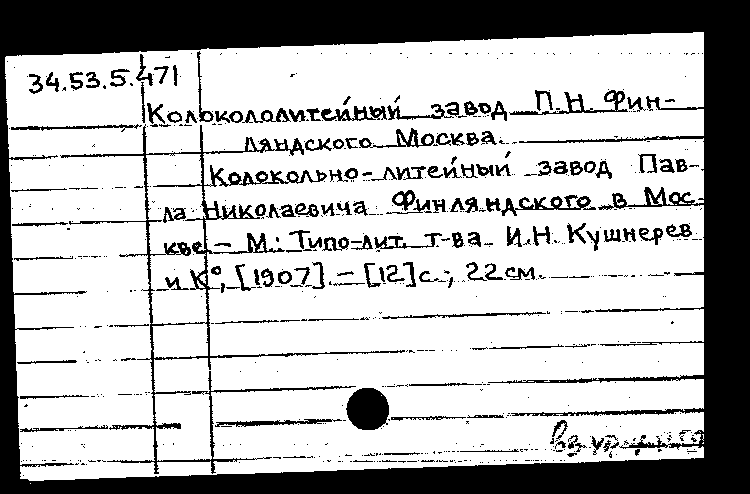 34.53.5.471
Колокололитейный завод П.Н. Фин-
ляндского. Москва.
Колокольно-литейный завод Пав-
ла Николаевича Финляндского в Мос-
кве. – М.: Типо-лит. т-ва И.Н. Кушнерев
и К°, [1907]. – [12] с.; 22 см.